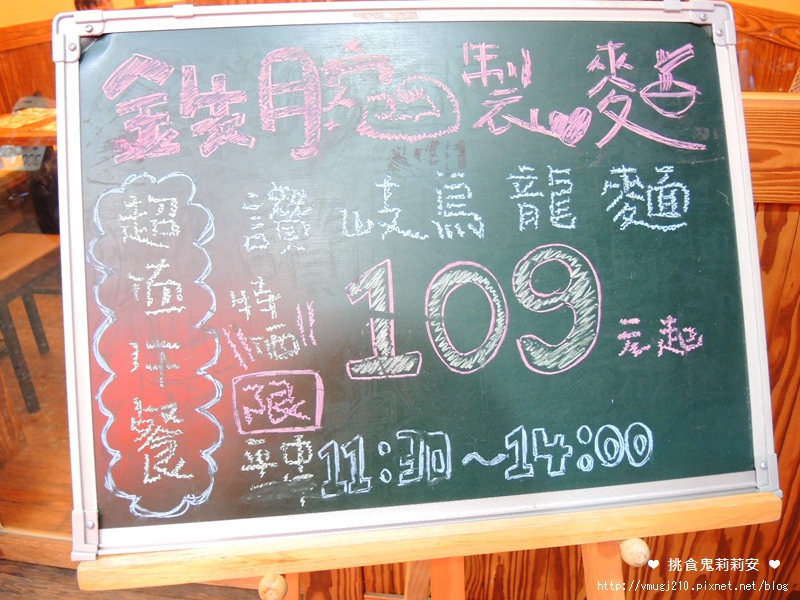 鐵腕製麵
讚岐烏龍麵
超值午餐
特価
109元起
限
平日11:30~14:00
♥ 挑食鬼莉莉安 ♥
http://vmugi210.pixnet.net/blog